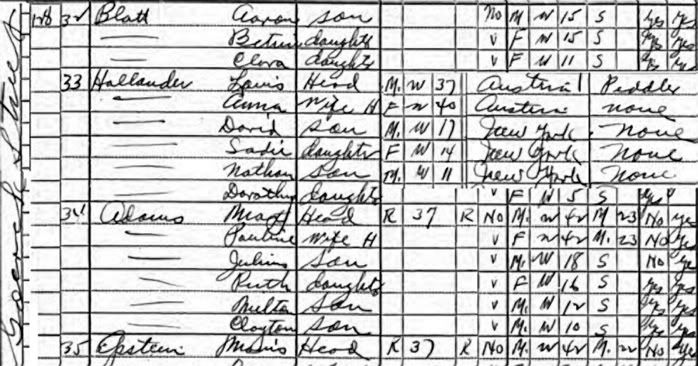 128 32 Blatt Aaron Son No M W 15 S Yes Yes
daughter v F W 15 S Yes Yes
Clara daughter v F W 11 S Yes Yes
33 Hallander Louis Head M. W 37 Austria Peddler
Anna Wife H F W 40 Austria none
David son M. W 17 New York. None
Sadie daughter F W 14 New York None
Nathan son M. W 11 New York None
Dorothy daughter v F W 5 S Yes
34 Adams Head R 37 R No M. W 42 M 23 No Yes
Pauline Wife H v F W 42 M. 23 No Yes
Julius Son v M. W 18 S No Yes
Ruth daughter v F W 16 S Yes Yes
Milton Son v M. W 12 S Yes Yes
Clayton son v M. W 10 S Yes Yes
35 Epstein Morris Head R 37 R No M. W 42 M. 22 No Yes
Street